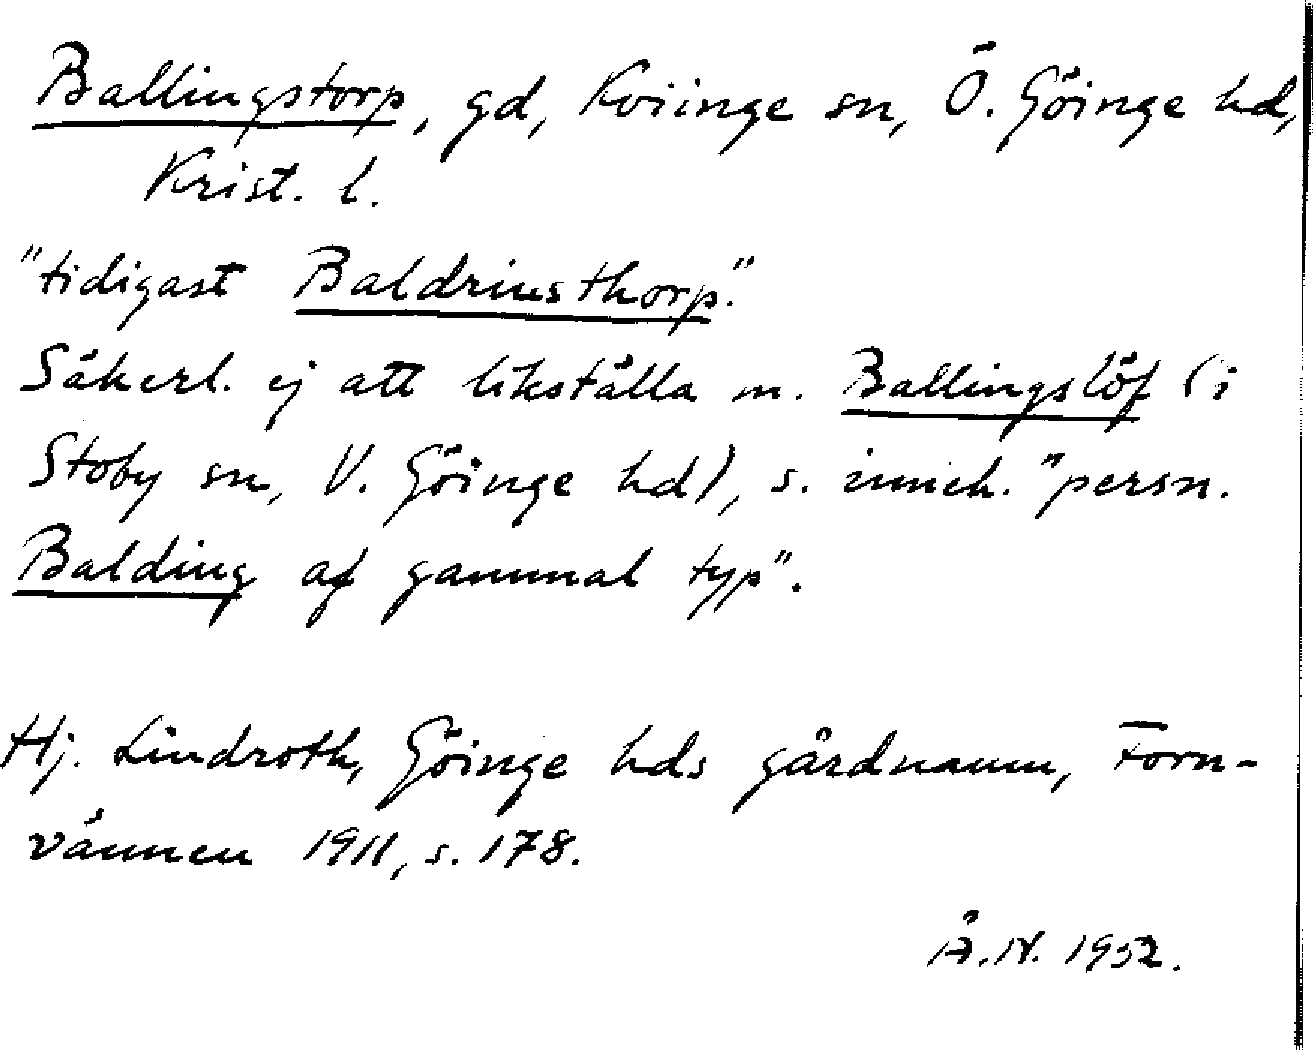 Ballingstorp, gd, Kviinge sn, Ö. Göinge hd,
Krist. l.
"tidigast Baldrinsthorp."
Säkerl. ej att likställa m. Ballingslöf (i
Stoby sn, V. Göinge hd), s. inneh. "persn.
Balding af gammal typ".
Hj. Lindroth, Göinge hds gårdnamn, Forn-
vännen 1911, s. 178.
Å.N. 1952.